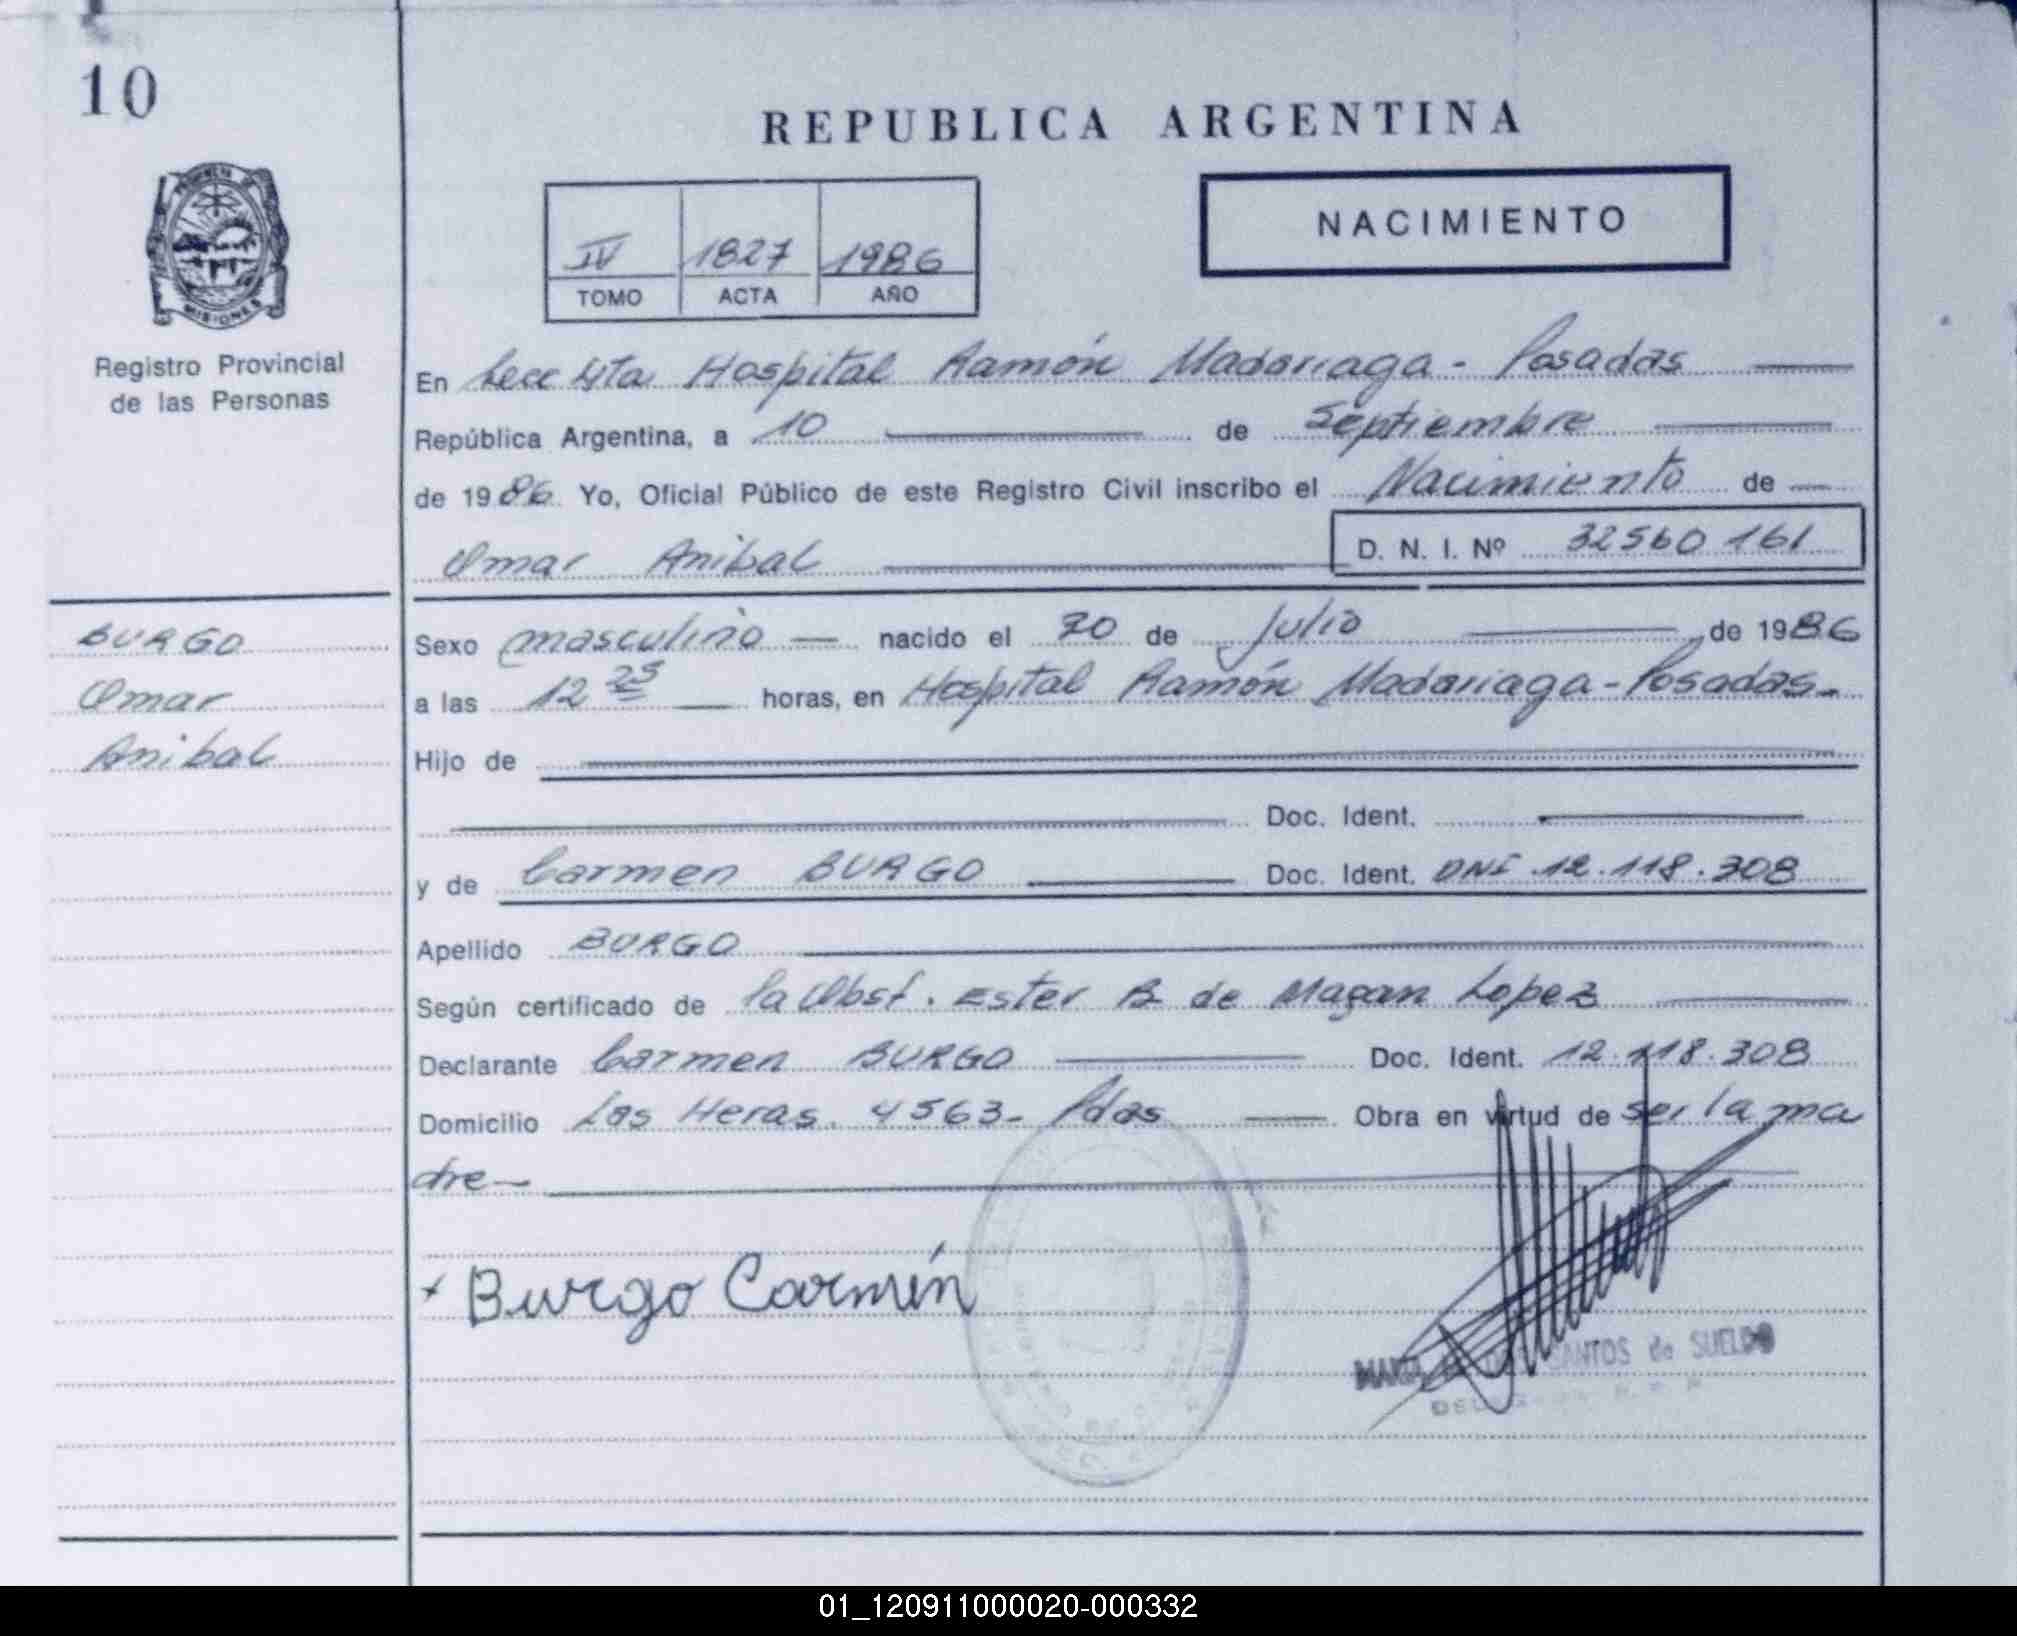 10
REPUBLICA ARGENTINA
NACIMIENTO
IV 1827 1986
TOMO ACTA AÑO
MISIONES
Registro Provincial
de las Personas
En Secc 4ta Hospital Ramón Madariaga - Posadas
República Argentina, a 10 de Septiembre
de 1986 Yo, Oficial Público de este Registro Civil inscribo el Nacimiento de
Omar Anibal D. N. I. Nº 32560 161
BURGO
Omar
Anibal
Sexo masculino nacido el de Julio de 1986
a las 12 25 horas, en Hospital Ramón Madariaga - Posadas
Hijo de
Doc. Ident.
y de Carmen BURGO Doc. Ident. DNI 12.118.308
Apellido BURGO
Según certificado de la Obst. Ester B de Magan Lopez
Declarante Carmen BURGO Doc. Ident. 12.118.308
Domicilio Las Heras 4563 - Pdas Obra en virtud de ser la ma
dre
x Burgo Carmen
SANTOS de SUELDO
01_120911000020-000332